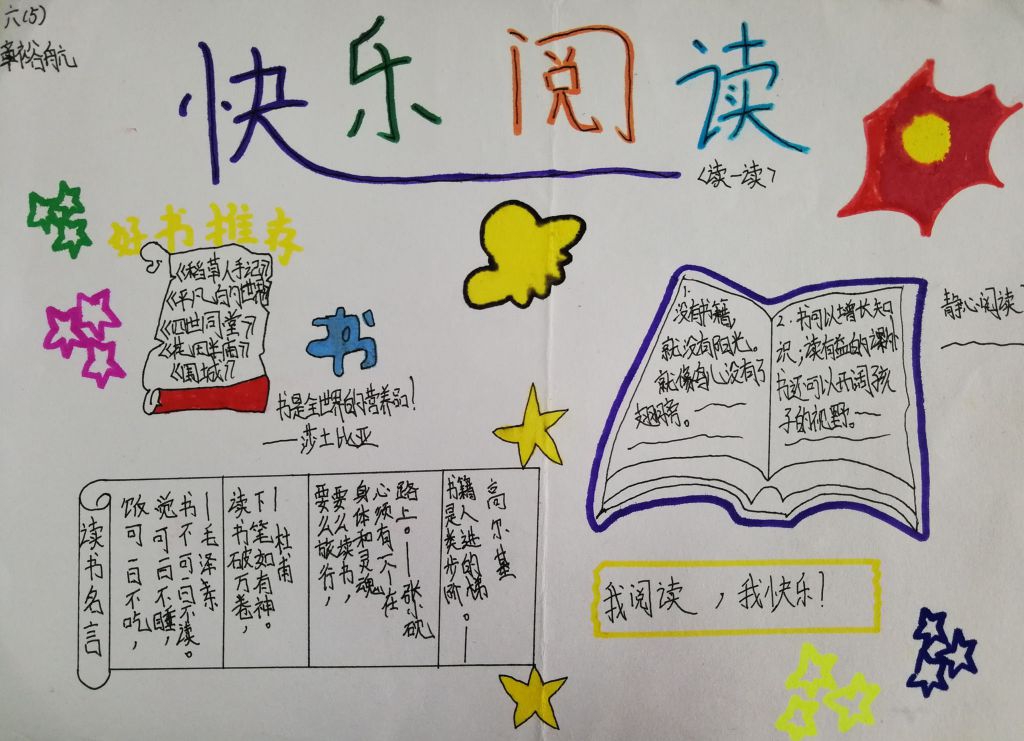 六(5)
章裕航
快乐阅读
<读一读>
好书推荐
《稻草人手记》
《平凡的世界》
《四世同堂》
《围城》
书
书是全世界的营养品!
——莎士比亚
静心阅读
1.
没有书籍,
就没有阳光。
就像鸟儿没有了
翅膀。
2.书可以增长知
识;读有益的课外
书还可以开阔孩
子的视野。
读书名言
饭可一日不吃,
觉可一日不睡,
书不可一日不读。
—毛泽东
读书破万卷,
下笔如有神。
—杜甫
要么旅行,
要么读书,
身体和灵魂
必须有一个在
路上。—张小砚
书籍是人类进步的阶梯。—
高尔基
我阅读,我快乐!